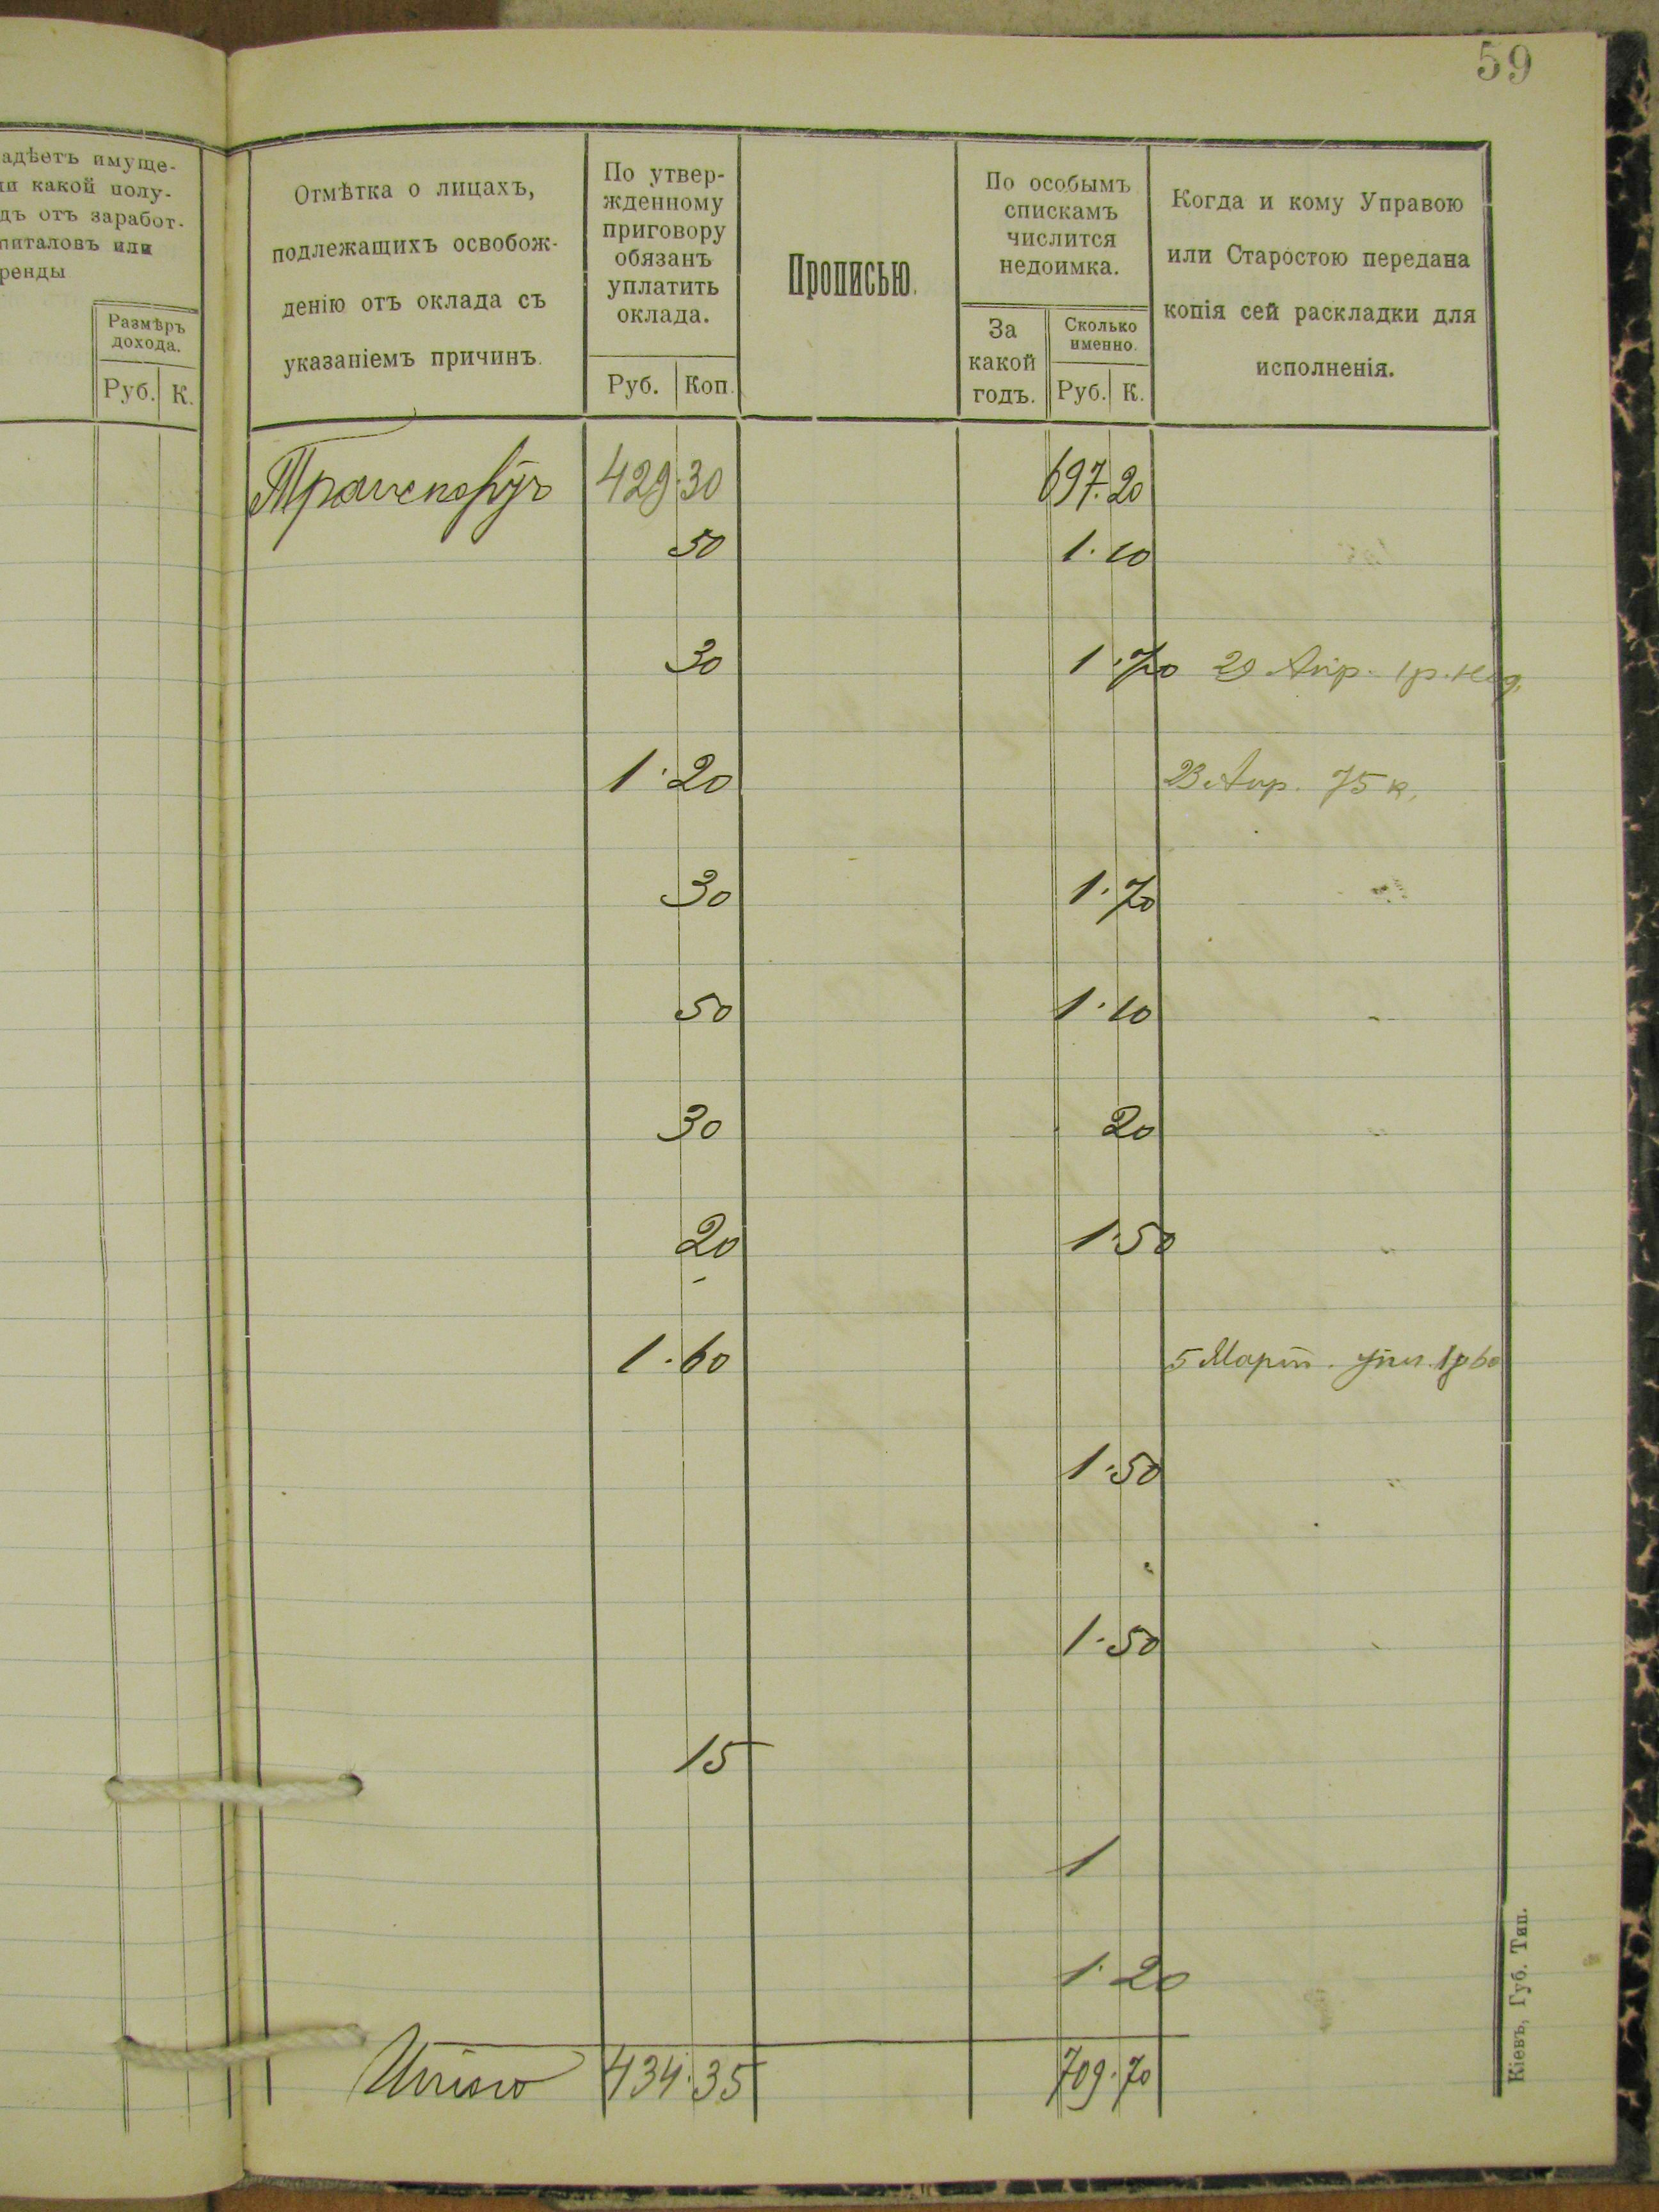 59
адѣетъ имуще-
ли какой полу-
дъ отъ заработ-
питаловъ или
ренды
Размѣръ
дохода.
Руб. К.
Отмѣтка о лицахъ,
подлежащихъ освобож-
денію отъ оклада съ
указаніемъ причинъ.
По утвер-
жденному
приговору
обязанъ
уплатить
оклада.
Руб. Коп.
Прописью.
По особымъ
спискамъ
числится
недоимка.
За
какой
годъ.
Сколько
именно.
Руб. К.
Когда и кому Управою
или Старостою передана
копія сей раскладки для
исполненія.
Транспортъ 429.30 697.20
50 1.10
30 1.70 29 Апр. 1 р.
1.20 23 Апр. 75 к.
30 1.70
50 1.10
30 20
20 1.50
1.60 5 Март. упл. 1р 60
1.50
1.50
15
1
1.20
Итого 434.35 709.70
Кіевъ, Губ. Тип.